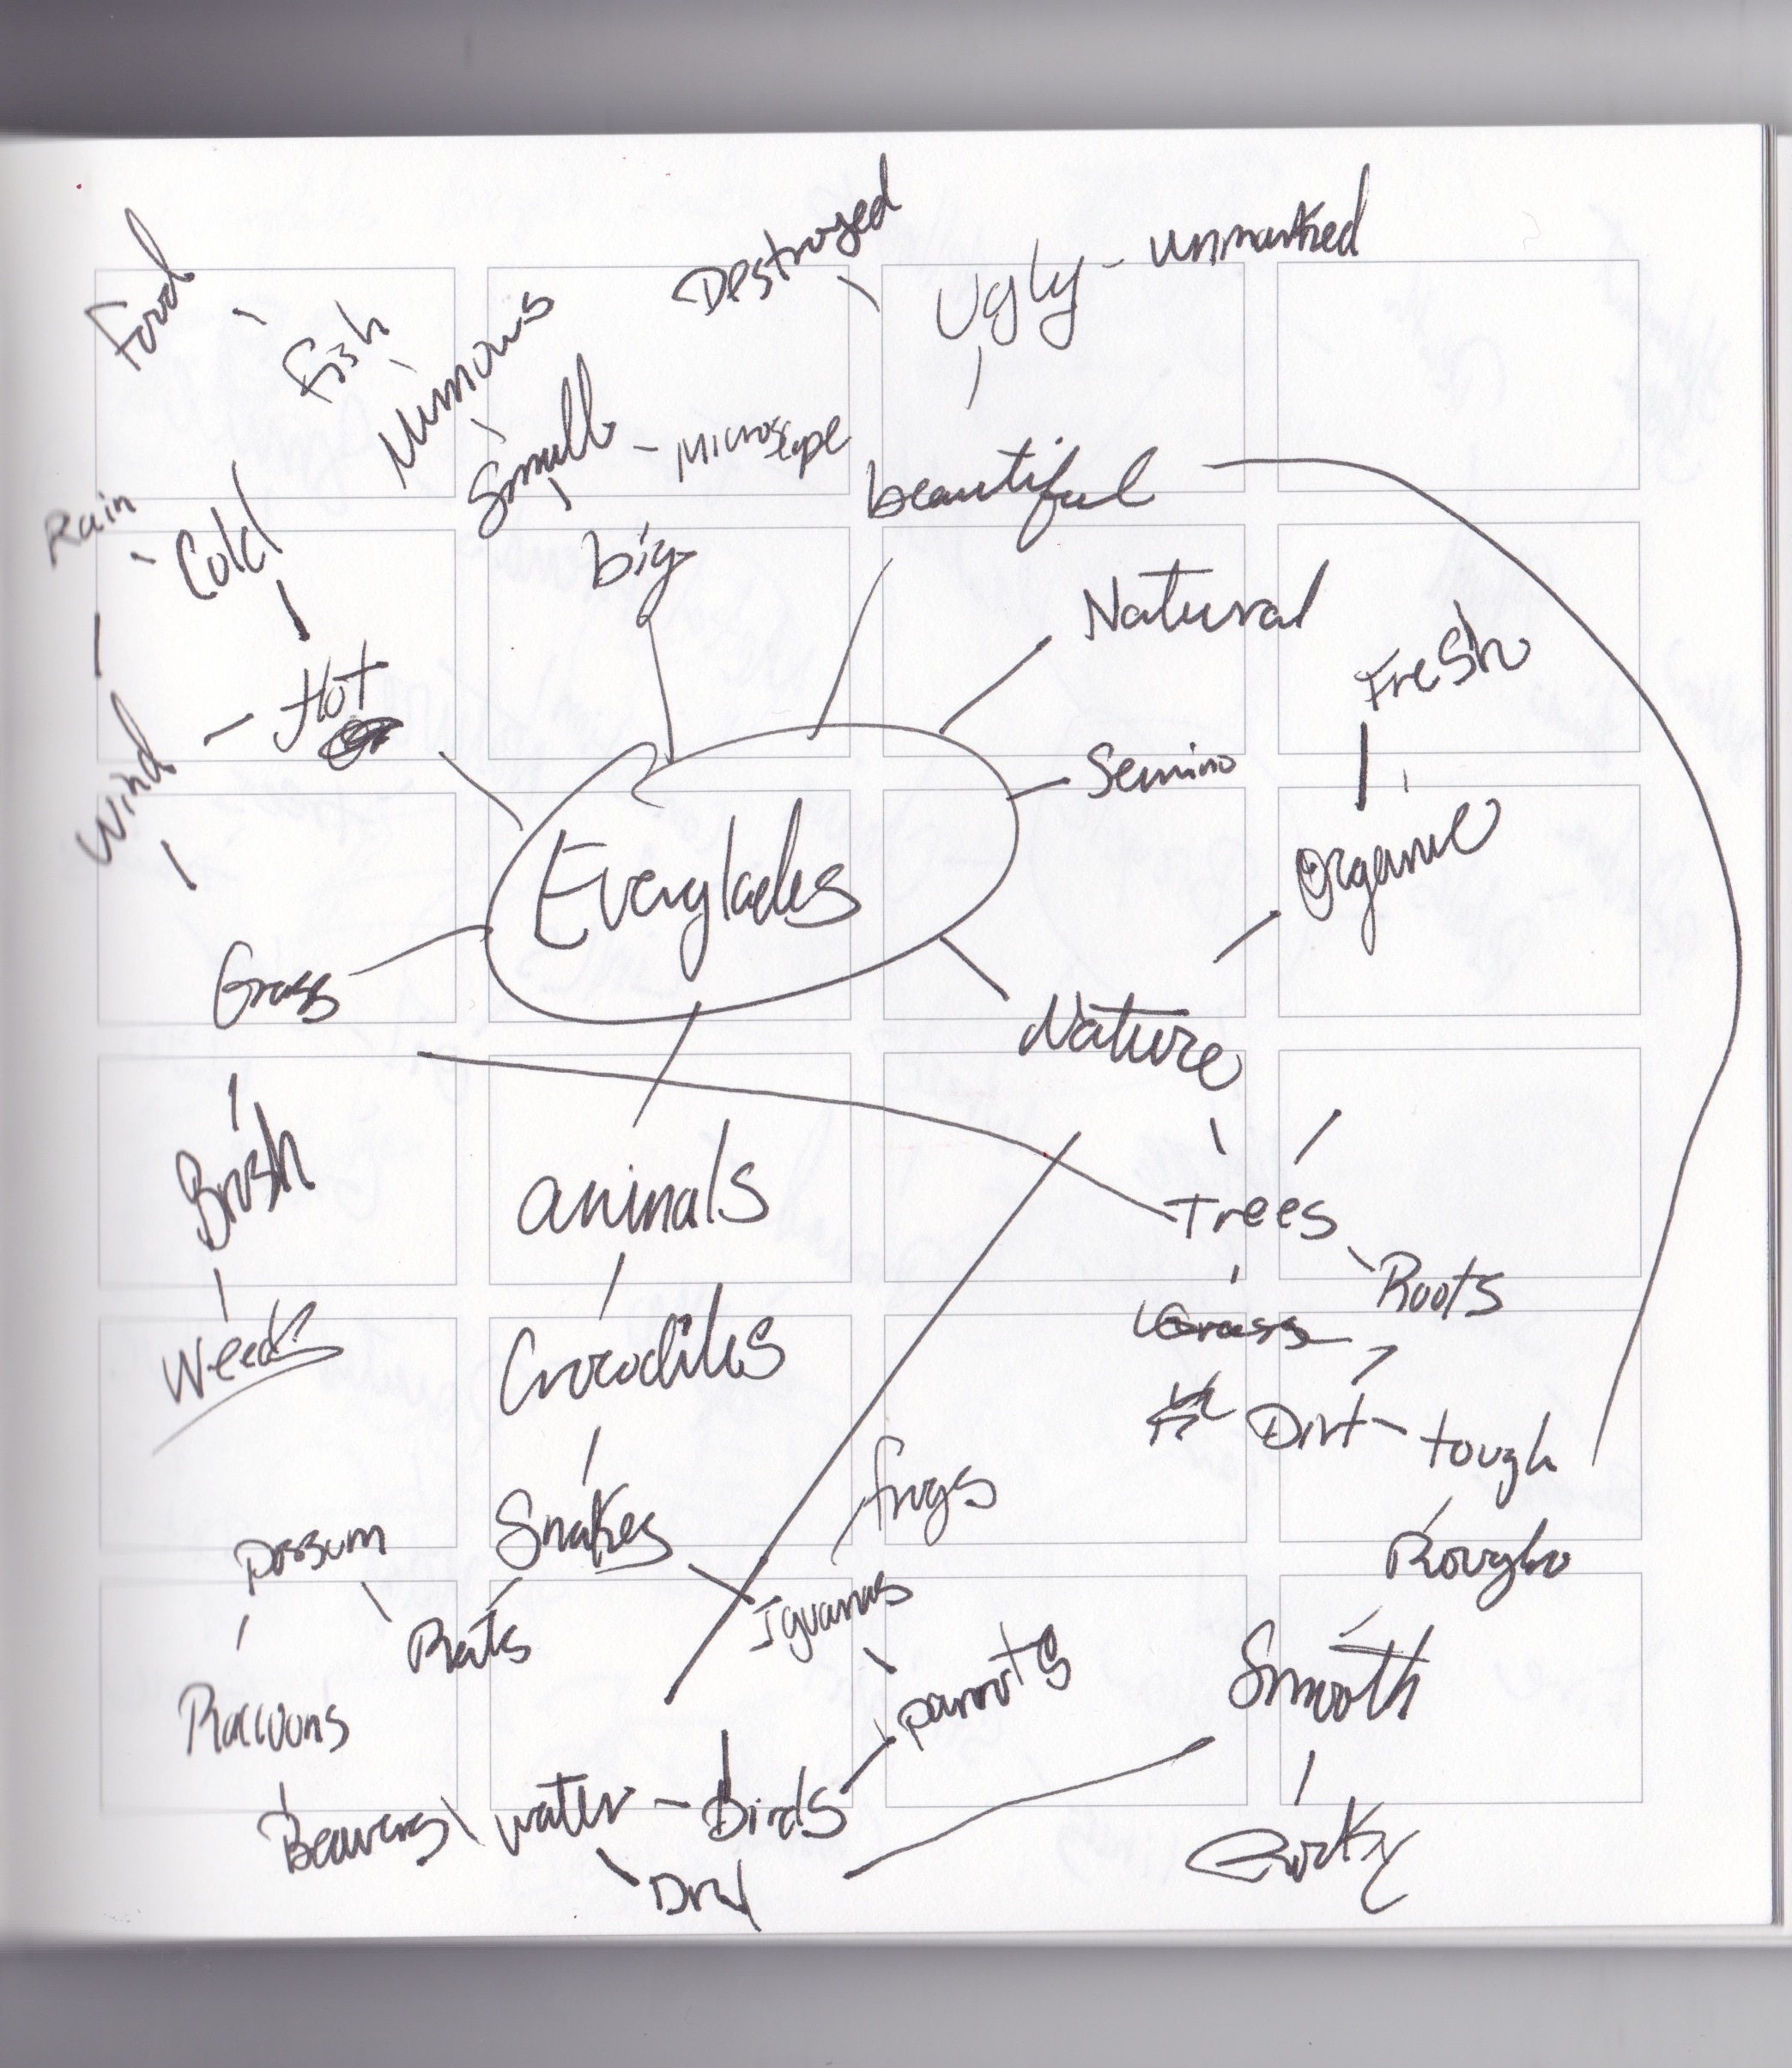 Destroyed
Ugly - unmarked
Food
Fish
Minnows
Small - Microscope
beautiful
Rain
Cold
big
Natural
Fresh
Hot
Semino
Wind
Organic
Everglades
Grass
Nature
Brush
animals
Trees
Roots
Weeds
Crocodiles
Grass
Dirt - tough
frogs
Snakes
Possum
Rough
Iguanas
Rats
parrots
Smooth
Raccoons
Beavers
water - Birds
Rocky
Dry